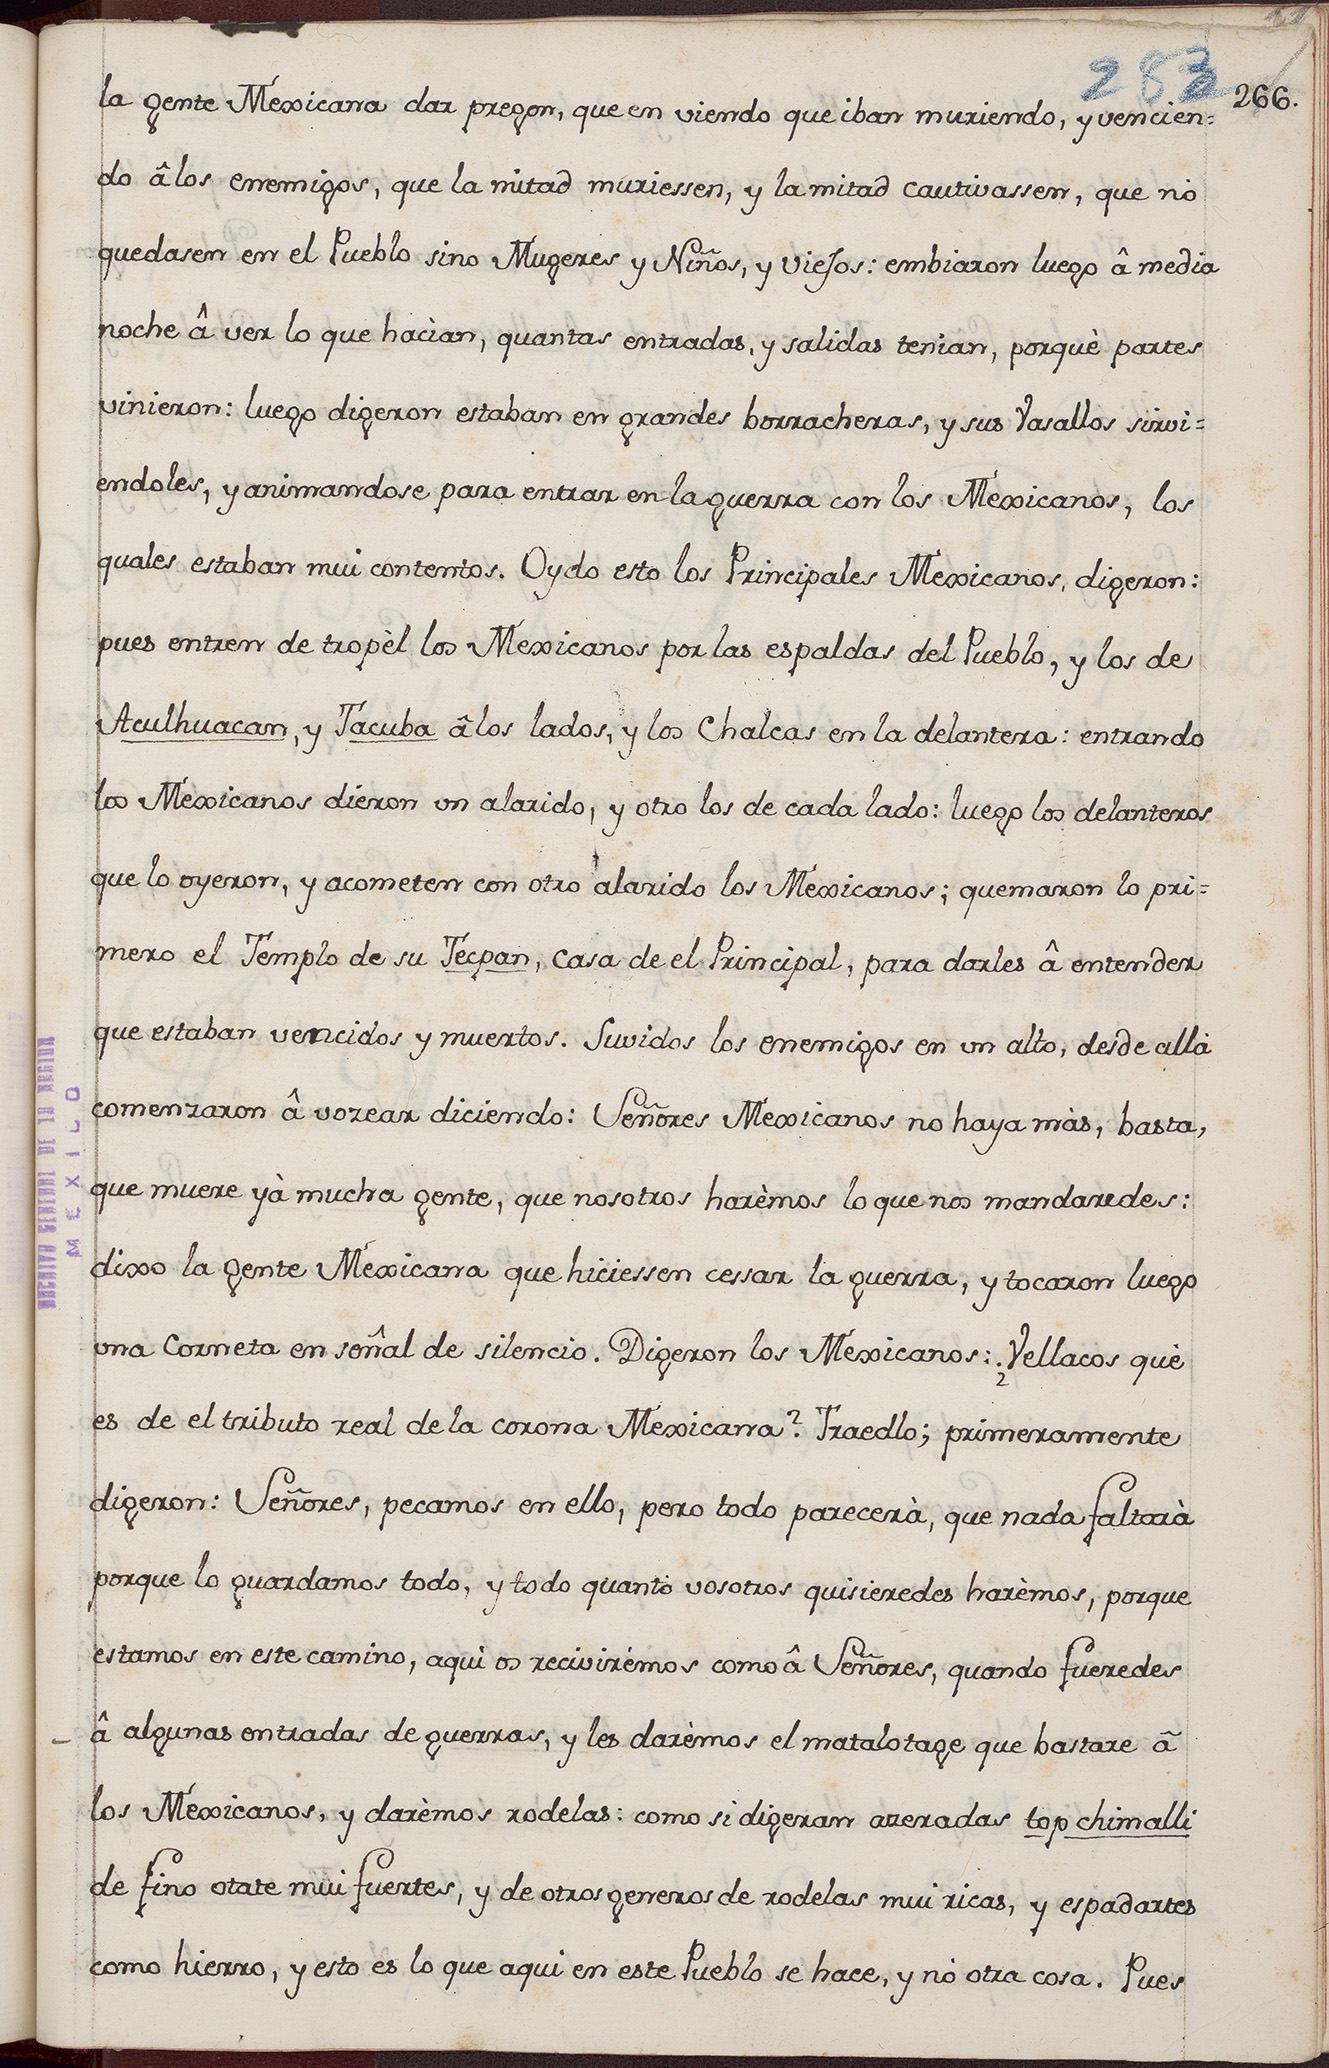 283 266.
la gente Mexicana dar pregon, que en viendo que iban muriendo, y vencien=
do â los enemigos, que la mitad muriessen, y la mitad cautivassen, que nò
quedasen en el Pueblo sino Mugeres y Niños, y viejos: embiaron luego â media
noche â ver lo que hacìan, quantas entradas, y salidas tenìan, porquè partes
vinieron: luego digeron estaban en grandes borracheras, y sus Vasallos sirvi=
endoles, y animandose para entrar en la guerra con los Mexicanos, los
quales estaban mui contentos. Oydo esto los Principales Mexicanos, digeron:
pues entren de tropèl los Mexicanos por las espaldas del Pueblo, y los de
Aculhuacan, y Tacuba â los lados, y los Chalcas en la delantera: entrando
los Mexicanos dieron un alarido, y otro los de cada lado: luego los delanteros
que lo oyeron, y acometen con otro alarido los Mexicanos; quemaron lo pri=
mero el Templo de su Tecpan, casa de el Principal, para darles â entender
que estaban vencidos y muertos. Suvidos los enemigos en un alto, desde allà
comenzaron â vozear diciendo: Señores Mexicanos no haya màs, basta,
que muere yà mucha gente, que nosotros harèmos lo que nos mandaredes:
dixo la gente Mexicana que hiciessen cessar la guerra, y tocaron luego
una Corneta en señal de silencio. Digeron los Mexicanos: ¿Vellacos què
es de el tributo real de la corona Mexicana? Traedlo; primeramente
digeron: Señores, pecamos en ello, pero todo parecerà, que nada faltarà
porque lo guardamos todo, y todo quanto vosotros quisieredes harèmos, porque
estamos en este camino, aquì os recivirèmos como â Señores, quando fueredes
â algunas entradas de guerras, y les darèmos el matalotage que bastare ã
los Mexicanos, y darèmos rodelas: como si digeran azeradas top chimalli
de fino otate mui fuertes, y de otros generos de rodelas mui ricas, y espadartes
como hierro, y esto es lo que aqui en este Pueblo se hace, y nò otra cosa. Pues
ARCHIVO GENERAL DE LA NACION
MEXICO